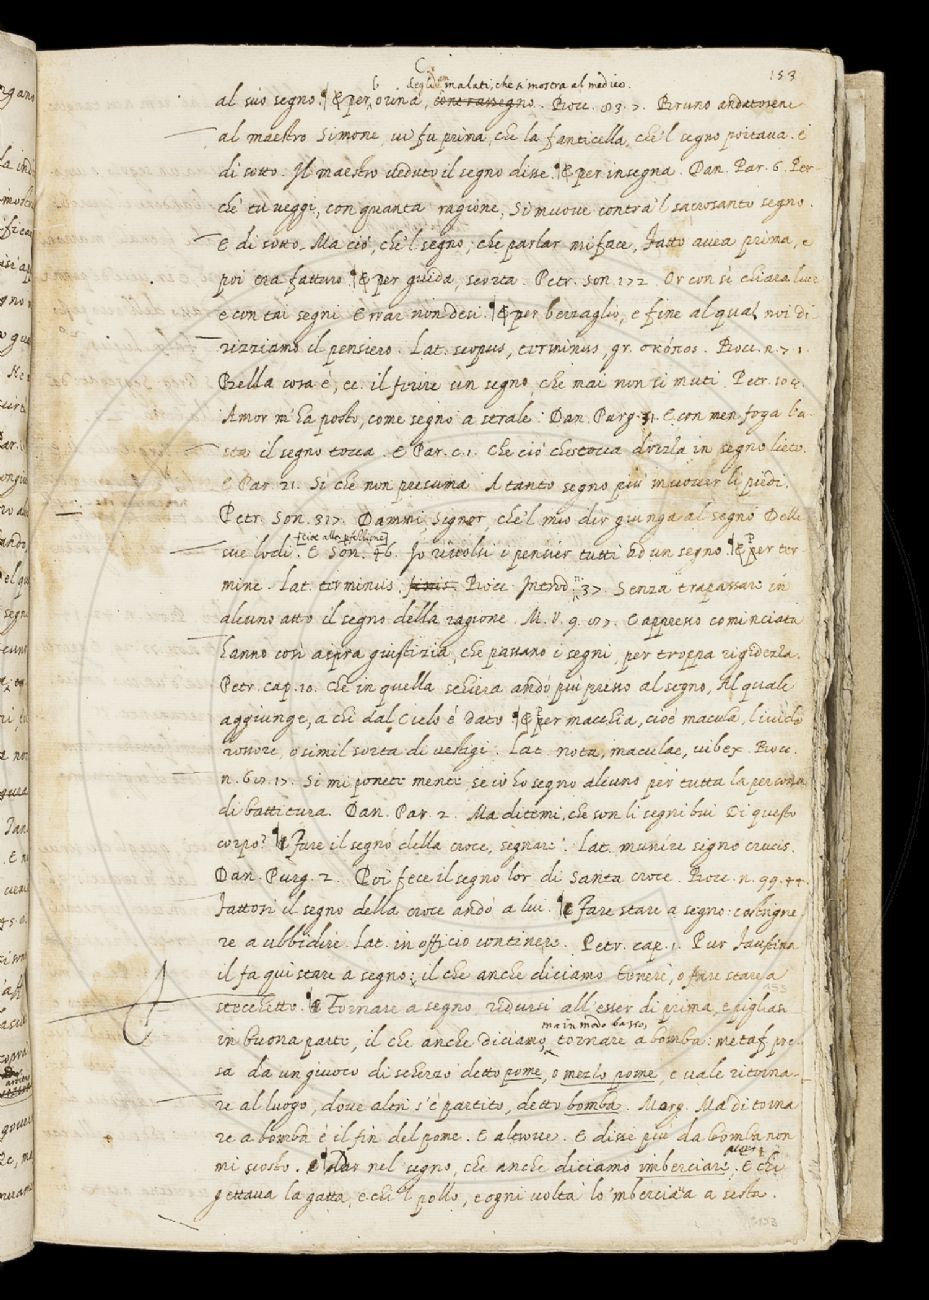 153
degli ammalati, che si mostra al medico.
al suo segno. ¶ E per ouna, contrassegno. Bocc. 83. 7. Bruno andatosene
al maestro Simone, vi fu prima, che la fanticella, che'l segno portava. E
di sotto. Il maestro veduto il segno disse. ¶ E per insegna. Dan. Par. 6. Per-
chè tu veggi, con quanta ragione, Si muove contra'l sacrosanto segno.
E di sotto. Ma ciò, che'l segno, che parlar mi face, Fatto avea prima, e
poi era fatturo. ¶ E per guida, scorta. Petr. Son. 172. Or con sì chiara luce
e con tai segni Errar non desi. ¶ E per berzaglio, e fine al qual noi di-
rizziamo il pensiero. Lat. scopus, terminus, gr. σκόπος. Bocc. n. 71.
Bella cosa è, ec. il ferire un segno, che mai non si muti. Petr. 104.
Amor m'ha posto, come segno a strale. Dan. Purg. 31. E con men foga l'a-
sta il segno tocca. E Par. c. 1. Che ciò che scocca drizza in segno lieto.
E Par. 21. Sì che non presuma A tanto segno più muover li piedi.
Petr. Son. 317. Dammi, Signor, che'l mio dir giunga al segno Delle
cioè alla pfezione
sue lodi. E Son. 46. Io rivolsi i pensier tutti ad un segno. ¶ E per ter-
mine. Lat. terminus. finis. Bocc. Introd. n. 37. Senza trapassare in
alcuno atto il segno della ragione. M. V. 9. 87. E appresso cominciata
hanno così aspra giustizia, che passano i segni, per troppa rigidezza.
Petr. cap. 10. Che in quella schiera andò più presso al segno, Al quale
aggiunge, a chi dal Cielo è dato. ¶ E per macchia, cioè macula, livido
rossore, o simil sorta di vestigi. Lat. nota, maculae, vibex. Bocc.
n. 68. 17. Si mi ponete mente se io ho segno alcuno per tutta la persona
di battitura. Dan. Par. 2. Ma ditemi, che son li segni bui Di questo
corpo? ¶ Fare il segno della croce, segnare. Lat. munire segno crucis.
Dan. Purg. 2. Poi fece il segno lor di Santa croce. Bocc. n. 99. 44.
Fattosi il segno della croce andò a lui. ¶ Fare stare a segno: costrigne-
re a ubbidire. Lat. in officio continere. Petr. cap. 1. Pur Faustina
il fa qui stare a segno: il che anche diciamo tenere, o fare stare a
stecchetto. ¶ Tornare a segno, ridursi all'esser di prima, e pigliasi
ma in modo basso,
in buona parte, il che anche diciamo, tornare a bomba: metaf. pre-
sa da un giuoco di scherzo detto pome, o mezlo pome, e vale ritorna-
re al luogo, dove altri s'è partito, detto bomba. Marg. Ma di torna-
re a bomba è il fin del pome. E altrove. E disse più da bomba non
mi scosto. ¶ Dar nel segno, che anche diciamo imberciare. E chi
gettava la gatta, e chi'l pollo, e ogni volta lo'mberciava a sesta.
153